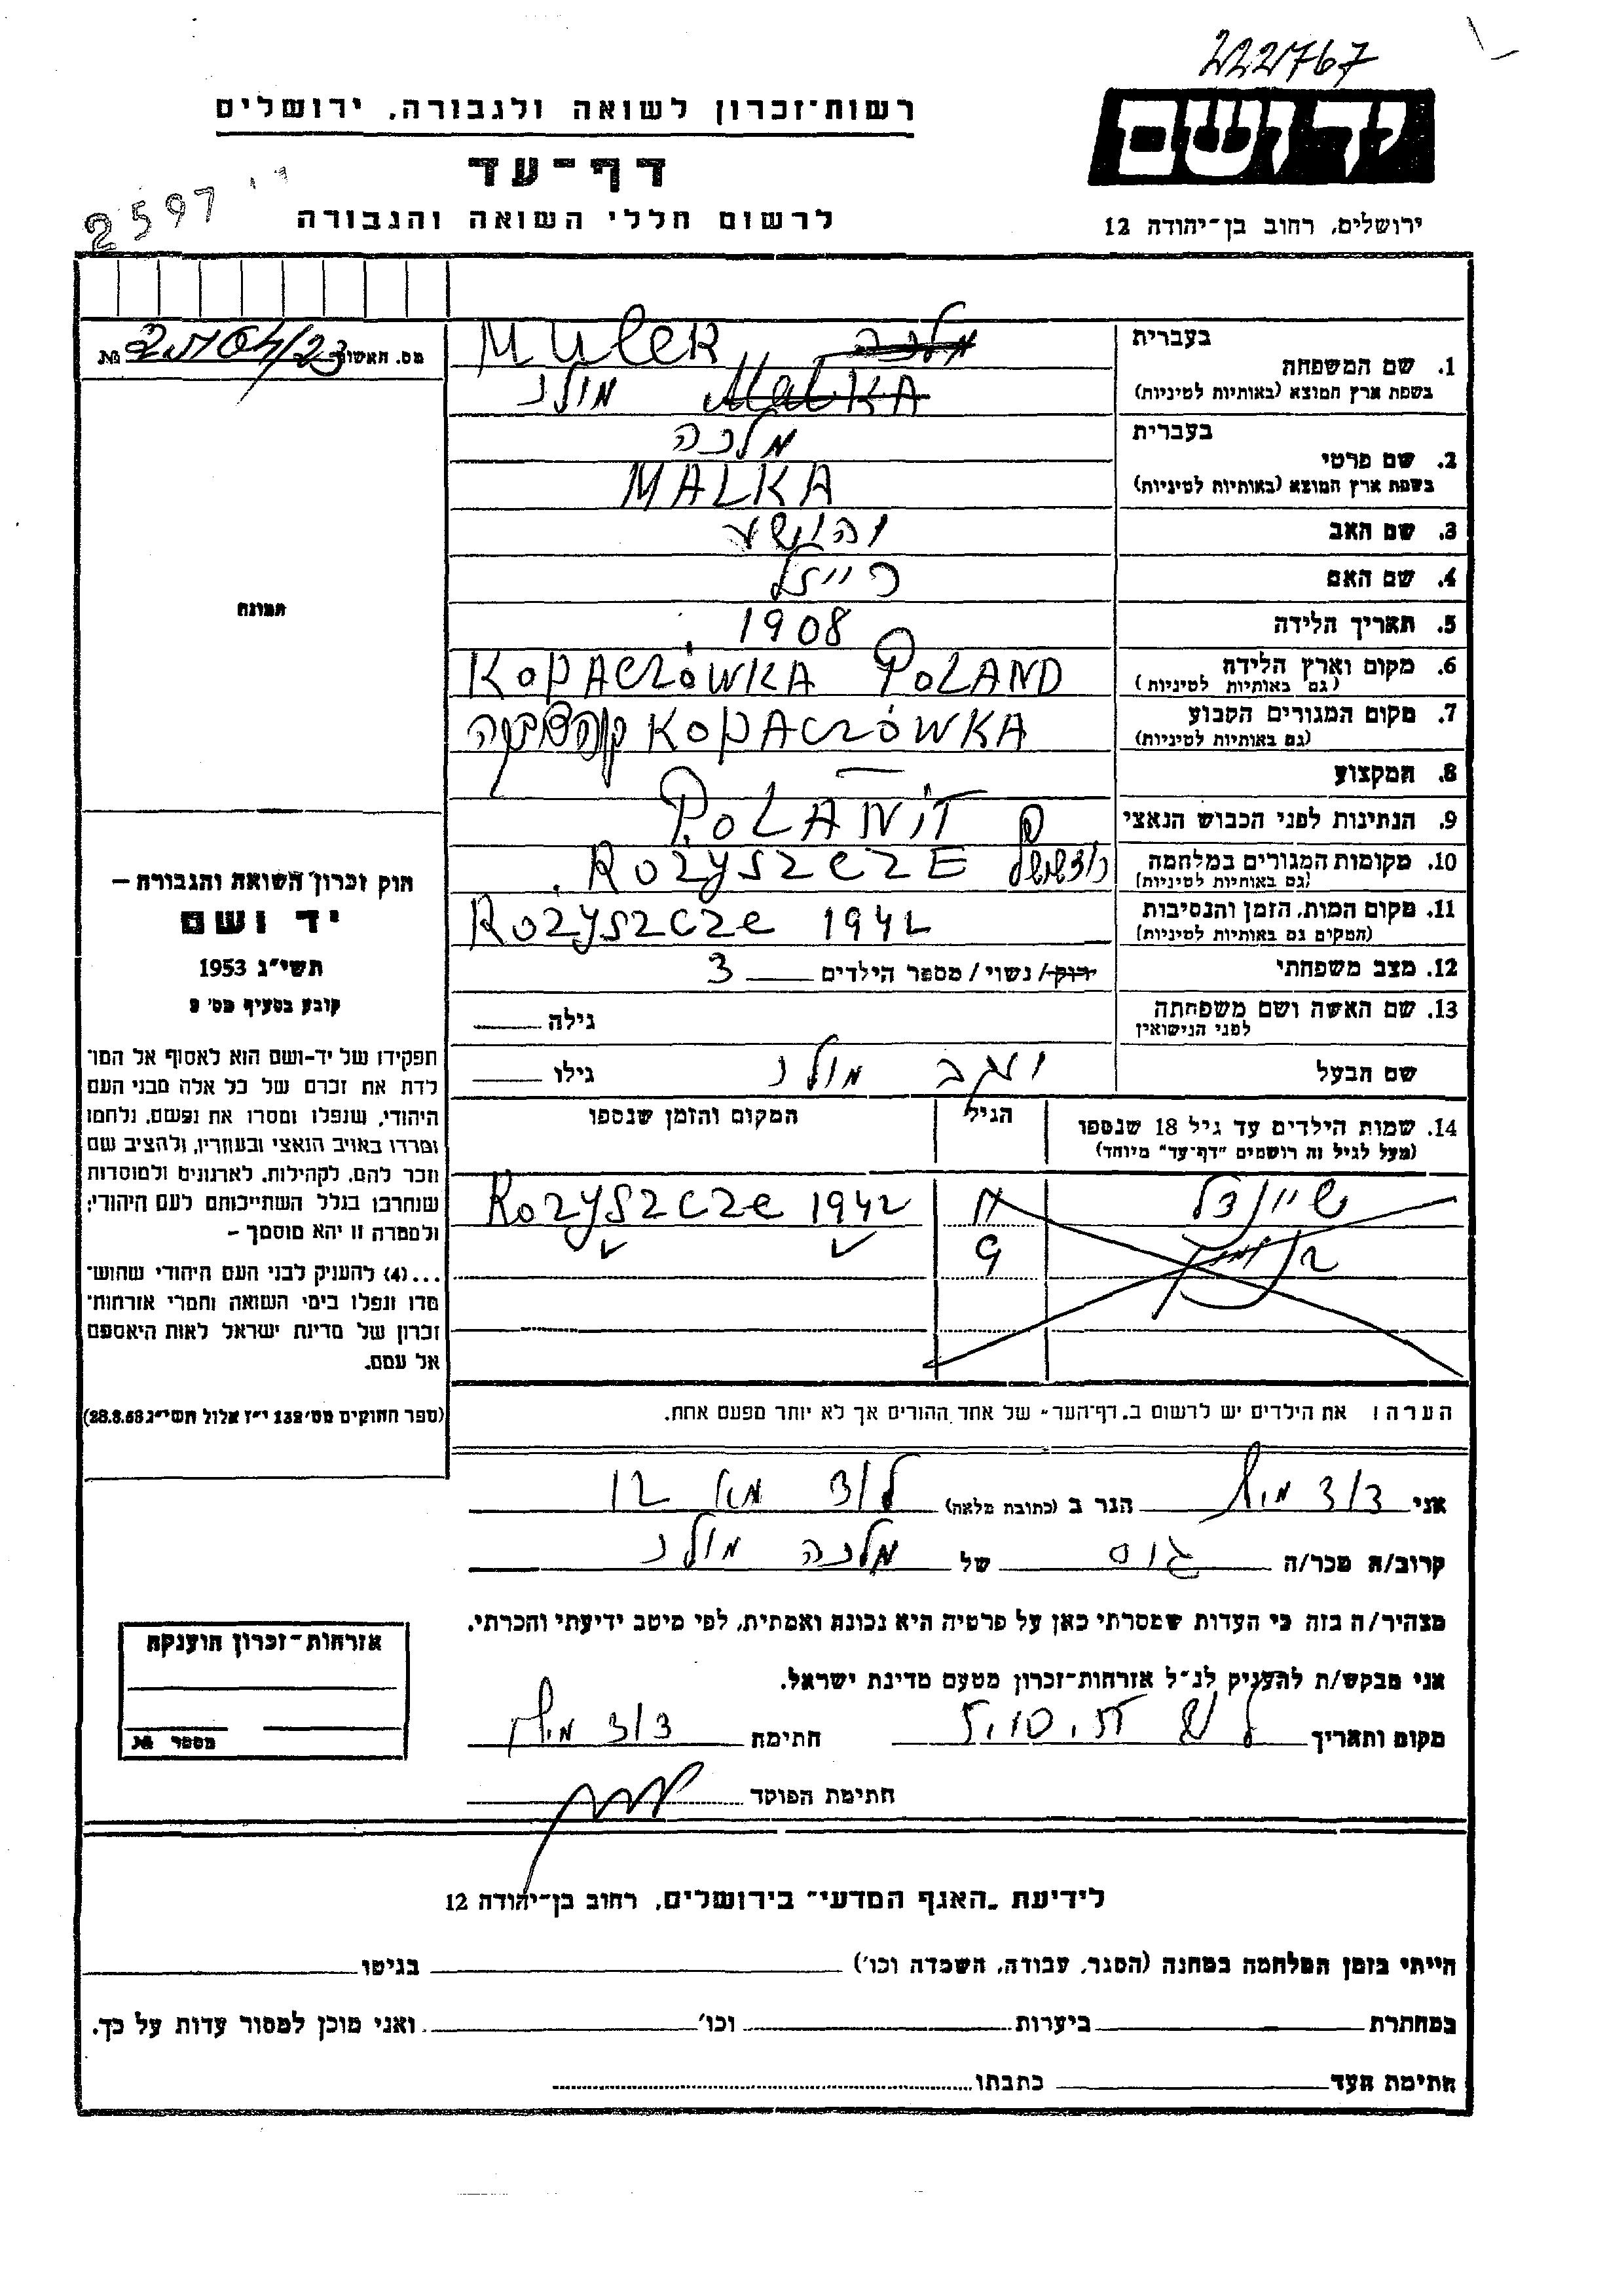 222767
יד ושם
רשות-זכרון לשואה ולגבורה, ירושלים
דף-עד
לרשום חללי השואה והגבורה
2597
ירושלים, רחוב בן-יהודה 12
בעברית
1. שם המשפחה
בשפת ארץ המוצא (באותיות לטיניות)
מלכה Mulek
Malka מולק
בעברית
2. שם פרטי
בשפת ארץ המוצא (באותיות לטיניות)
מלכה
MALKA
3. שם האב יהושע
4. שם האם רייזל
5. תאריך הלידה 1908
6. מקום וארץ הלידה KOPACZÓWKA POLAND
(גם באותיות לטיניות)
7. מקום המגורים הקבוע KOPACZÓWKA
(גם באותיות לטיניות)
8. המקצוע —
9. הנתינות לפני הכבוש הנאצי POLANIT
10. מקומות המגורים במלחמה ROŻYSZCZE
(גם באותיות לטיניות)
11. מקום המות, הזמן והנסיבות Rożyszcze 1942
(המקום גם באותיות לטיניות)
12. מצב משפחתי רווק/ נשוי/ מספר הילדים 3
13. שם האשה ושם משפחתה גילה
לפני הנישואין
שם הבעל יעקב מולק גילו
14. שמות הילדים עד גיל 18 שנספו הגיל המקום והזמן שנספו
(מעל לגיל זה רושמים "דף-עד" מיוחד)
שיינדל Rozyszcze 1942
9
הערה: את הילדים יש לרשום ב"דף-העד" של אחד ההורים אך לא יותר מפעם אחת.
מס. האשור №
תמונה
חוק זכרון השואה והגבורה —
יד ושם
תשי"ג 1953
קובע בסעיף מס' 2
תפקידו של יד-ושם הוא לאסוף אל המו־
לדת את זכרם של כל אלה מבני העם
היהודי, שנפלו ומסרו את נפשם, נלחמו
ומרדו באויב הנאצי ובעוזריו, ולהציב שם
וזכר להם, לקהילות, לארגונים ולמוסדות
שנחרבו בגלל השתייכותם לעם היהודי;
ולמטרה זו יהא מוסמך —
...(4) להעניק לבני העם היהודי שהוש־
מדו ונפלו בימי השואה והמרי אזרחות־
זכרון של מדינת ישראל לאות היאספם
אל עמם.
(ספר החוקים מס' 132 י"ז אלול תשי"ג 28.8.53)
אני הגר ב (כתובת מלאה)
קרוב/ה מכר/ה גיס של מלכה מולק
מצהיר/ה בזה כי העדות שמסרתי כאן על פרטיה היא נכונה ואמתית, לפי מיטב ידיעתי והכרתי.
אני מבקש/ת להעניק לנ"ל אזרחות-זכרון מטעם מדינת ישראל.
מקום ותאריך חתימה
חתימת הפוקד
אזרחות-זכרון הוענקה
מספר №
לידיעת "האגף המדעי" בירושלים, רחוב בן-יהודה 12
הייתי בזמן המלחמה במחנה (הסגר, עבודה, השמדה וכו') בגיטו
במחתרת ביערות וכו' ואני מוכן למסור עדות על כך.
חתימת העד כתבתו